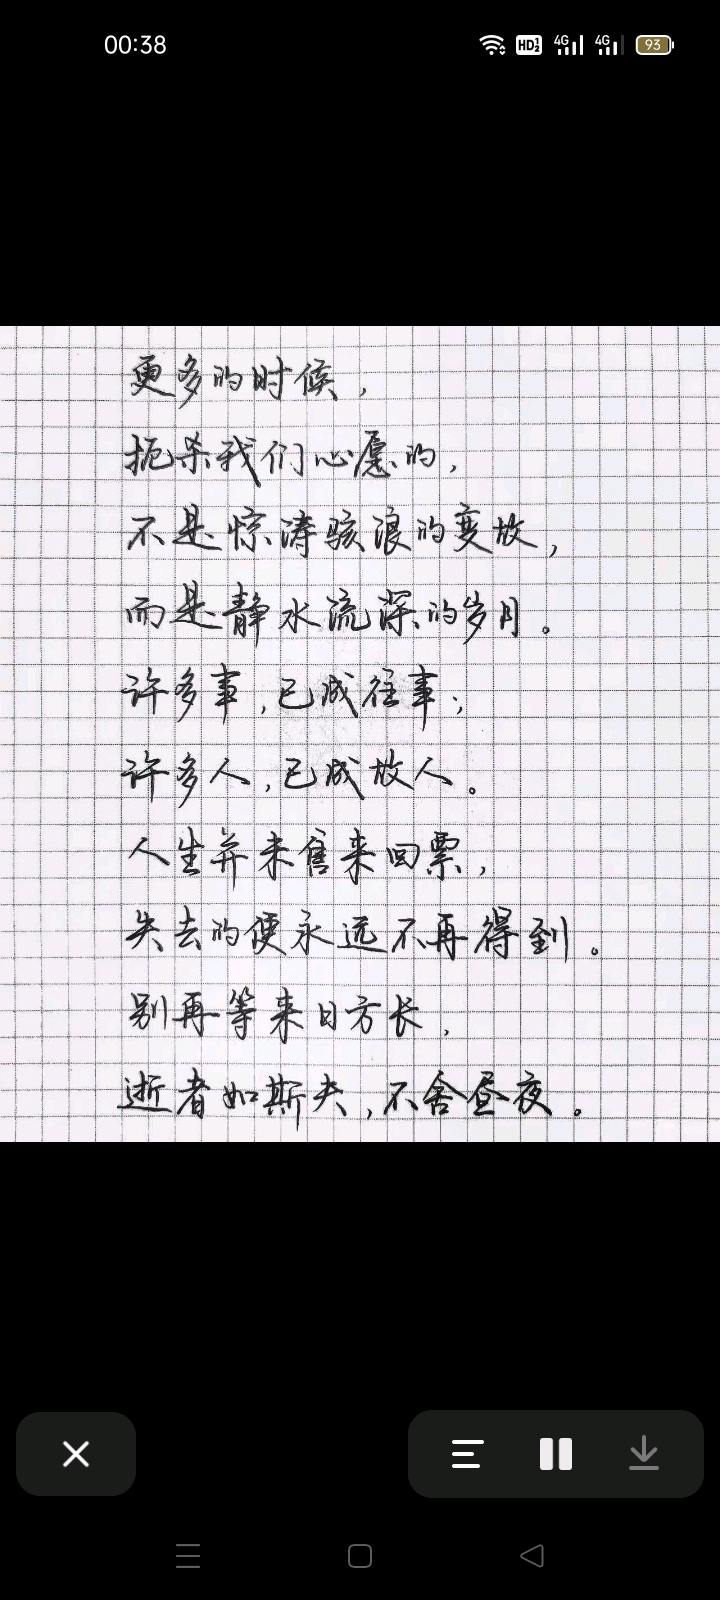 00:38
HD 1 2 4G 4G 93
更多的时候，
扼杀我们心愿的，
不是惊涛骇浪的变故，
而是静水流深的岁月。
许多事，已成往事；
许多人，已成故人。
人生并未售来回票，
失去的便永远不再得到。
别再等来日方长，
逝者如斯夫，不舍昼夜。